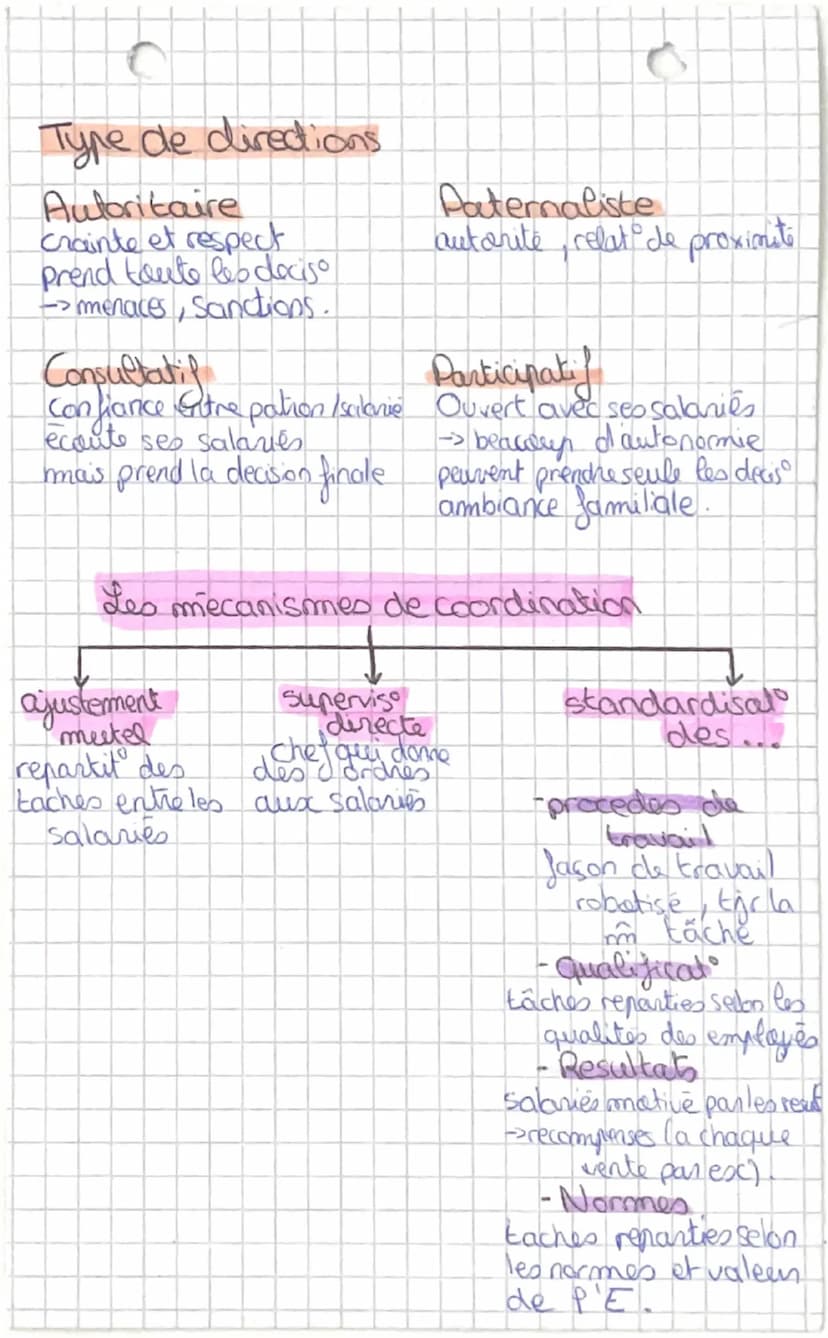 Type de directions
Autoritaire
crainte et respect
prend toute les decis°
-> menaces, sanctions.
Paternaliste
autorité, relat° de proximité
Consultatif
Confiance entre patron/salarié
écoute ses salariés
mais prend la decision finale
Participatif
Ouvert avec ses salariés
-> beacoup d'autonomie
peuvent prendre seule les decis°
ambiance familiale.
Les mécanismes de coordination
ajustement
mutel
repartit° des
taches entre les
salariés
supervis°
directe
chef qui donne
des ordres
aux salariés
standardisat°
des...
- procedes de
travail
façon de travail
robotisé, tjr la
mm tâche
- Qualificat°
tâches reparties selon les
qualites des employés
- Resultats
salariés motivé par les result
-> recompenses (a chaque
vente par ex).
- Normes
taches reparties selon
les normes et valeur
de l'E.